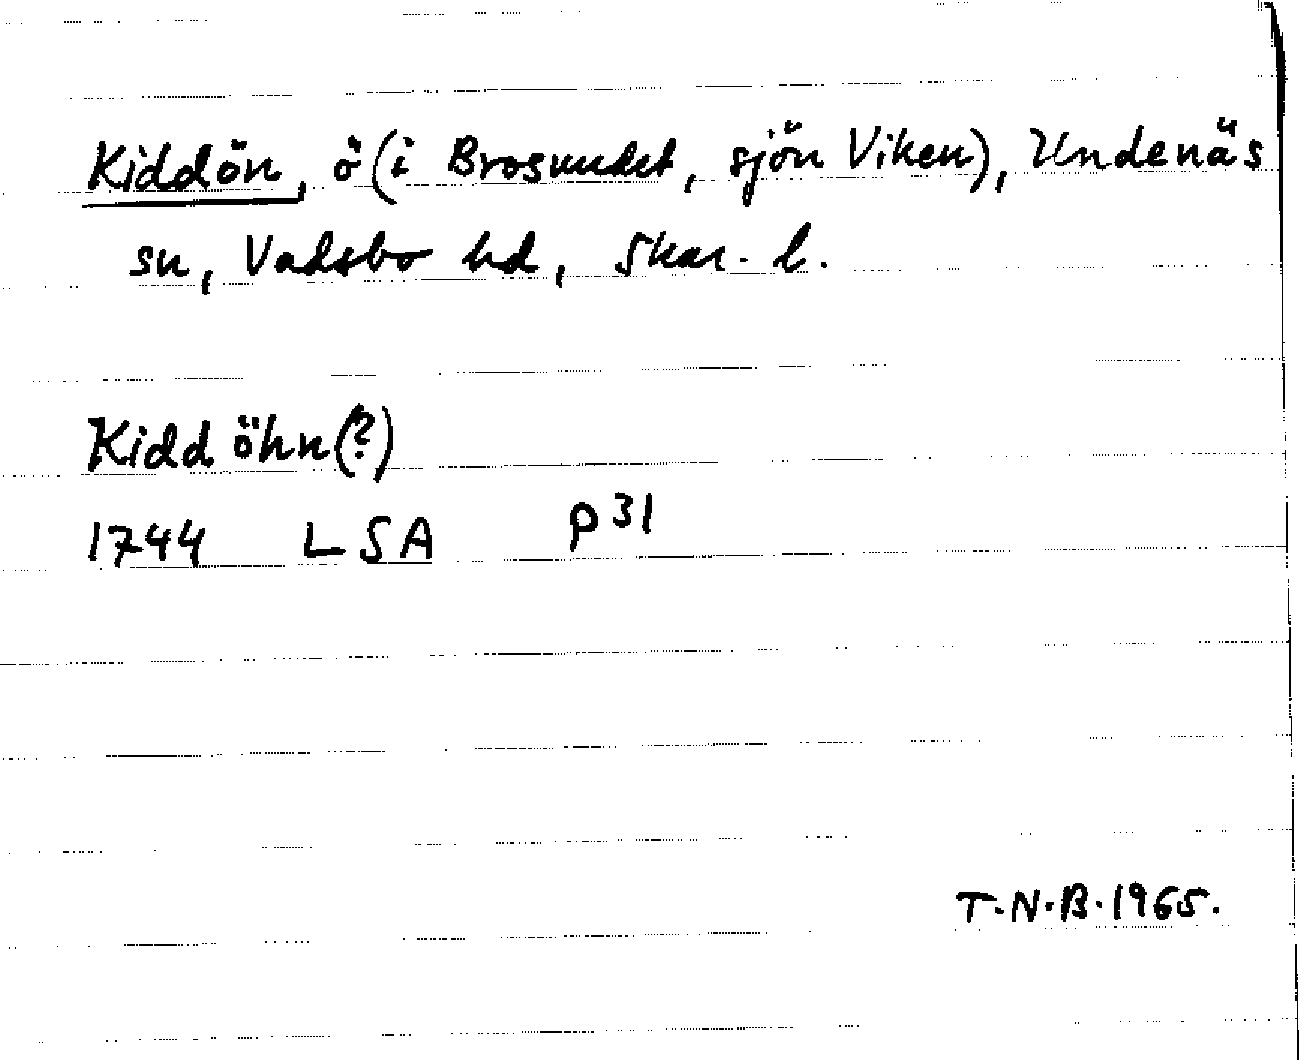 Kiddön, ö (i Brosundet, sjön Viken), Undenäs
sn, Vadsbo hd, Skar. l.
Kidd öhn(?)
1744 LSA p 31
T.N.B. 1965.